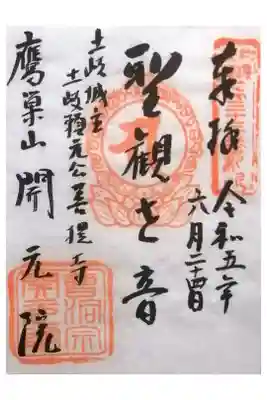 奉拝
令和五年
六月二十四日
聖観世音
土岐城主
土岐頼元公菩提寺
鷹巣山開元院
曹洞宗